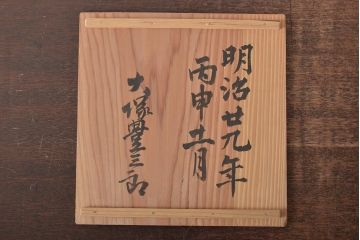 明治廿九年
丙申土月
大塚豊三郎